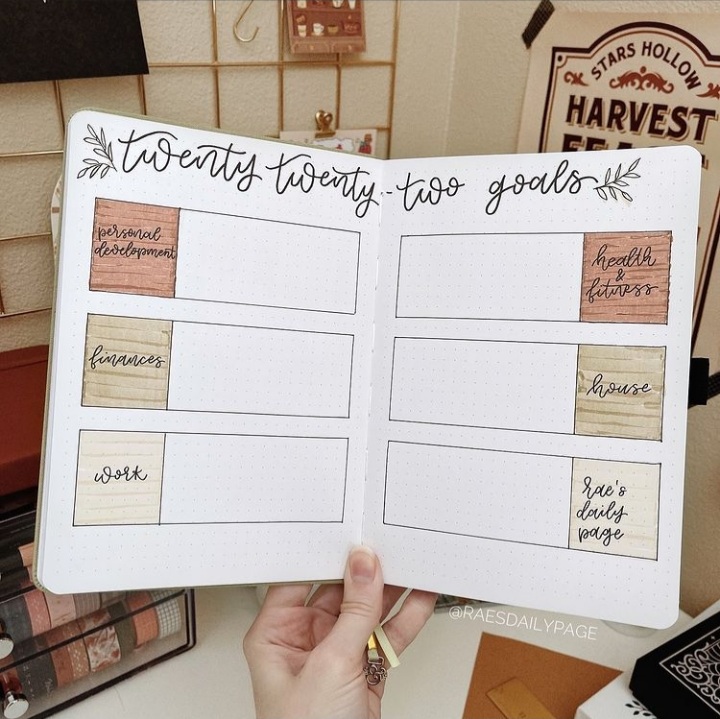 STARS HOLLOW
HARVEST
twenty twenty-two goals
personal
development
health
&
fitness
finances
house
work
rae's
daily
page
@RAESDAILYPAGE